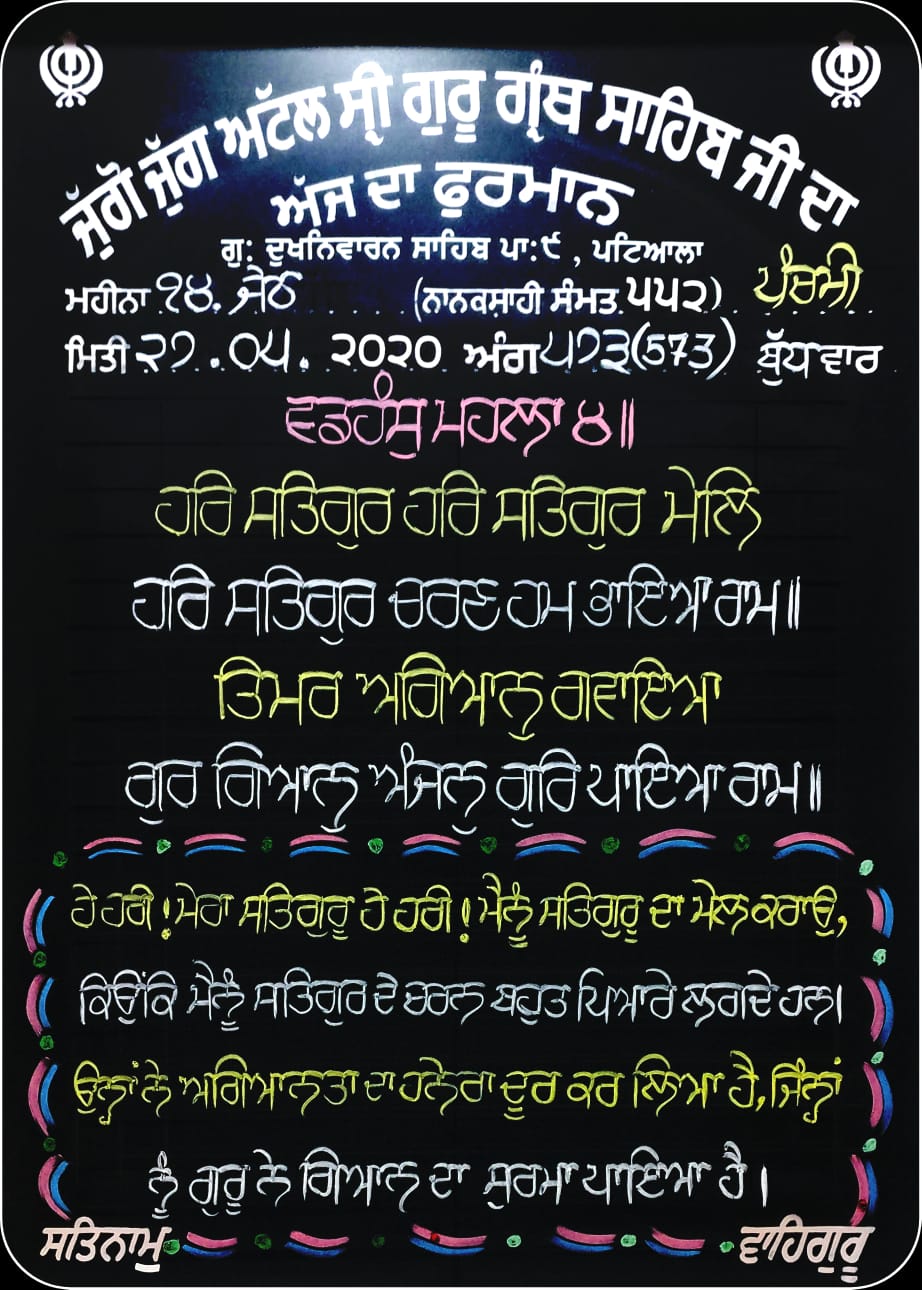 ਜੁੱਗੋ ਜੁੱਗ ਅੱਟਲ ਸ੍ਰੀ ਗੁਰੂ ਗ੍ਰੰਥ ਸਾਹਿਬ ਜੀ ਦਾ
ਅੱਜ ਦਾ ਫੁਰਮਾਨ
ਗੁ: ਦੁਖਨਿਵਾਰਨ ਸਾਹਿਬ ਪਾ:੯ , ਪਟਿਆਲਾ
ਮਹੀਨਾ ੧੪. ਜੇਠ (ਨਾਨਕਸ਼ਾਹੀ ਸੰਮਤ ੫੫੨) ਪੰਚਮੀ
ਮਿਤੀ ੨੭.੦੫.੨੦੨੦ ਅੰਗ ੫੭੩(573) ਬੁੱਧਵਾਰ
ਵਡਹੰਸੁ ਮਹਲਾ ੪॥
ਹਰਿ ਸਤਿਗੁਰ ਹਰਿ ਸਤਿਗੁਰ ਮੇਲਿ
ਹਰਿ ਸਤਿਗੁਰ ਚਰਣ ਹਮ ਭਾਇਆ ਰਾਮ॥
ਤਿਮਰ ਅਗਿਆਨੁ ਗਵਾਇਆ
ਗੁਰ ਗਿਆਨੁ ਅੰਜਨੁ ਗੁਰਿ ਪਾਇਆ ਰਾਮ॥
ਹੇ ਹਰੀ ! ਮੇਰਾ ਸਤਿਗੁਰੂ ਹੇ ਹਰੀ ! ਮੈਨੂੰ ਸਤਿਗੁਰੂ ਦਾ ਮੇਲ ਕਰਾਉ,
ਕਿਉਂਕਿ ਮੈਨੂੰ ਸਤਿਗੁਰ ਦੇ ਚਰਨ ਬਹੁਤ ਪਿਆਰੇ ਲਗਦੇ ਹਨ।
ਉਨ੍ਹਾਂ ਨੇ ਅਗਿਆਨਤਾ ਦਾ ਹਨੇਰਾ ਦੂਰ ਕਰ ਲਿਆ ਹੈ, ਜਿੰਨ੍ਹਾਂ
ਨੂੰ ਗੁਰੂ ਨੇ ਗਿਆਨ ਦਾ ਸੁਰਮਾ ਪਾਇਆ ਹੈ।
ਸਤਿਨਾਮੁ ਵਾਹਿਗੁਰੂ